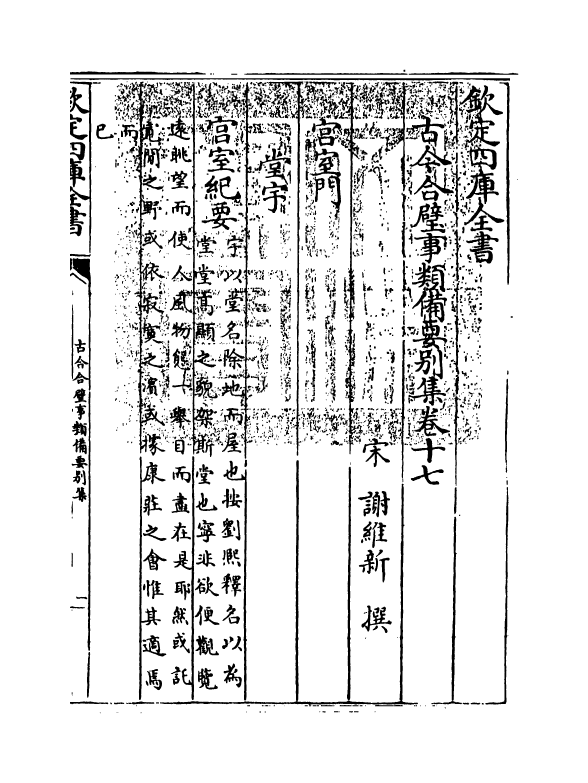 欽定四庫全書
古今合璧事類備要別集卷十七
宋 謝維新 撰
宮室門
堂宇
宮室紀要
宇以堂名除地而屋也按劉熙釋名以為
堂堂高顯之貌架斯堂也寧非欲便觀覽
遠眺望而使人風物態一舉目而盡在是耶然或託
寬閒之野或依寂寞之濱或據康莊之會惟其適焉
而已
欽定四庫全書
古今合璧事類備要別集